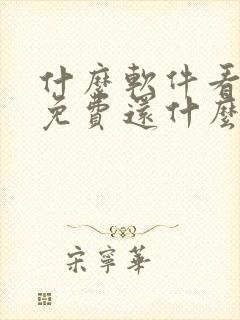 什麼軟件看
免費還什麼
宋寧華